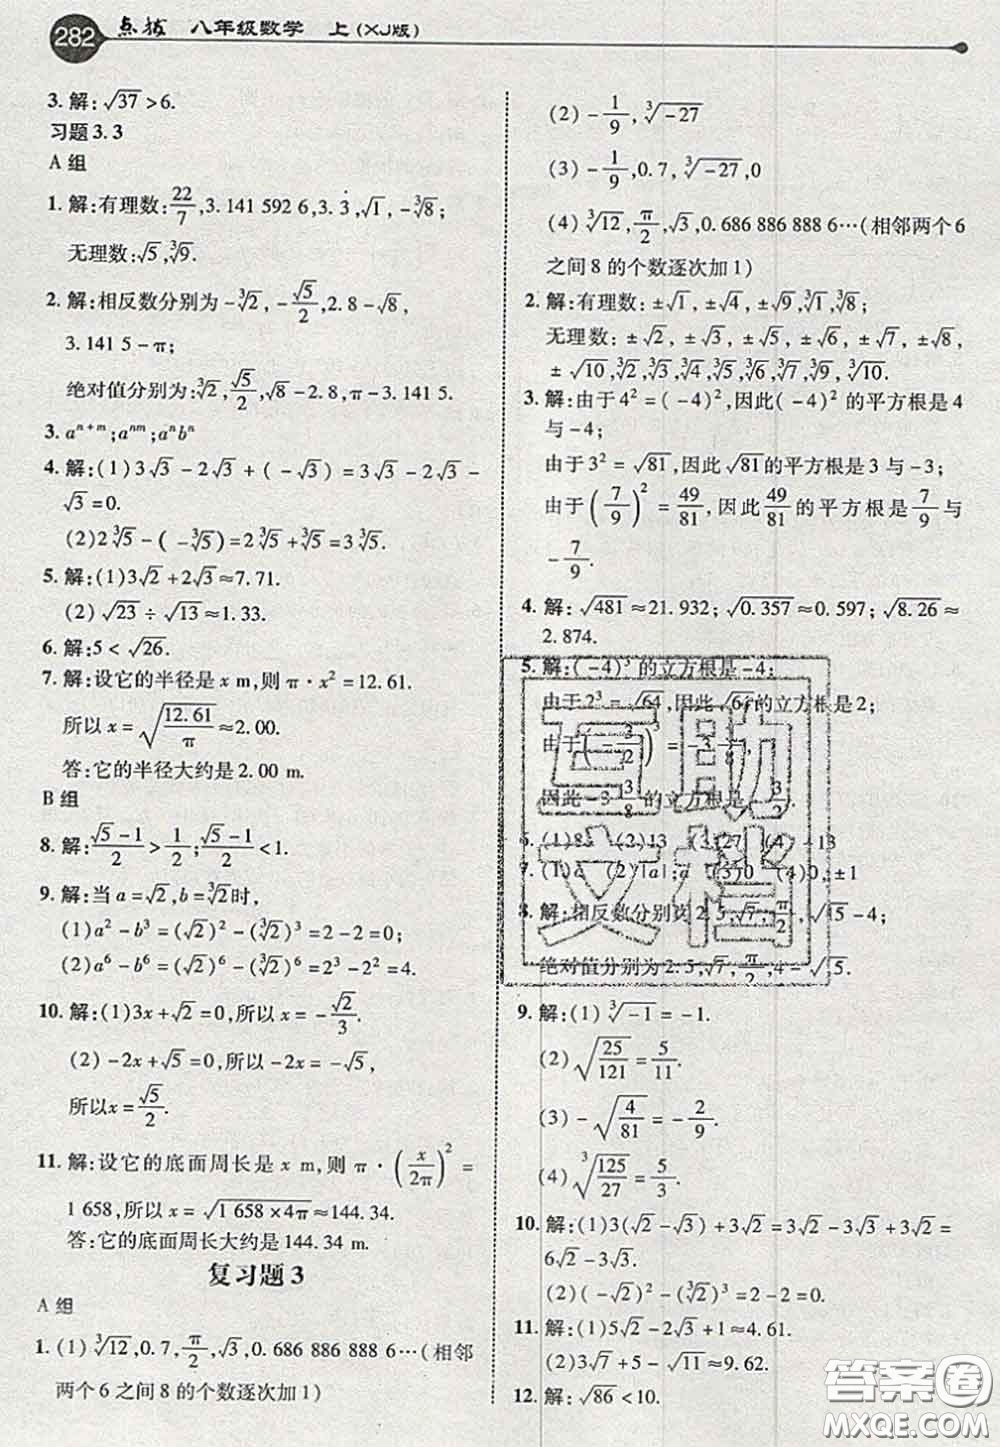 282 点拨 八年级数学 上(XJ版)
3. 解:√37>6.
习题3.3
A 组
1. 解:有理数:22/7,3.141 592 6,3.3̇,√1,-∛8;
无理数:√5,∛9.
2. 解:相反数分别为-∛2,-√5/2,2.8-√8,
3.141 5-π;
绝对值分别为:∛2,√5/2,√8-2.8,π-3.141 5.
3. aⁿ⁺ᵐ;aⁿᵐ;aⁿbⁿ
4. 解:(1)3√3-2√3+(-√3)=3√3-2√3-
√3=0.
(2)2∛5-(-∛5)=2∛5+∛5=3∛5.
5. 解:(1)3√2+2√3≈7.71.
(2)√23÷√13≈1.33.
6. 解:5<√26.
7. 解:设它的半径是 x m,则 π·x²=12.61.
所以 x=√(12.61/π)≈2.00.
答:它的半径大约是2.00 m.
B 组
8. 解:(√5-1)/2>1/2;(√5-1)/2<1.
9. 解:当 a=√2,b=∛2时,
(1)a²-b³=(√2)²-(∛2)³=2-2=0;
(2)a⁶-b⁶=(√2)⁶-(∛2)⁶=2³-2²=4.
10. 解:(1)3x+√2=0,所以 x=-√2/3.
(2)-2x+√5=0,所以-2x=-√5,
所以 x=√5/2.
11. 解:设它的底面周长是 x m,则 π·(x/2π)²=
1 658,所以 x=√(1 658×4π)≈144.34.
答:它的底面周长大约是144.34 m.
复习题3
A 组
1. (1)∛12,0.7,π/2,√3,0.686 886 888 6…(相邻
两个6之间8的个数逐次加1)
(2)-1/9,∛-27
(3)-1/9,0.7,∛-27,0
(4)∛12,π/2,√3,0.686 886 888 6…(相邻两个6
之间8的个数逐次加1)
2. 解:有理数:±√1,±√4,±√9,∛1,∛8;
无理数:±√2,±√3,±√5,±√6,±√7,±√8,
±√10,∛2,∛3,∛4,∛5,∛6,∛7,∛9,∛10.
3. 解:由于4²=(-4)²,因此(-4)²的平方根是4
与-4;
由于3²=√81,因此√81的平方根是3与-3;
由于(7/9)²=49/81,因此49/81的平方根是7/9与
-7/9.
4. 解:√481≈21.932;√0.357≈0.597;√8.26≈
2.874.
5. 解:(-4)³的立方根是-4;
由于2³=√64,因此√64的立方根是2;
由于(-3/2)³=-3 3/8,
因此-3 3/8的立方根是-3/2.
6. (1)85 (2)13 (3)27 (4)-13
7. (1)a (2)|a|;a (3)0 (4)0,±1
8. 解:相反数分别为2.5,√7,π/2,√15-4;
绝对值分别为2.5,√7,π/2,4-√15.
9. 解:(1)∛-1=-1.
(2)√(25/121)=5/11.
(3)-√(4/81)=-2/9.
(4)∛(125/27)=5/3.
10. 解:(1)3(√2-√3)+3√2=3√2-3√3+3√2=
6√2-3√3.
(2)(-√2)²-(∛2)³=2-2=0.
11. 解:(1)5√2-2√3+1≈4.61.
(2)3√7+5-√11≈9.62.
12. 解:√86<10.
互助
文档
答案圈
MXQE.COM